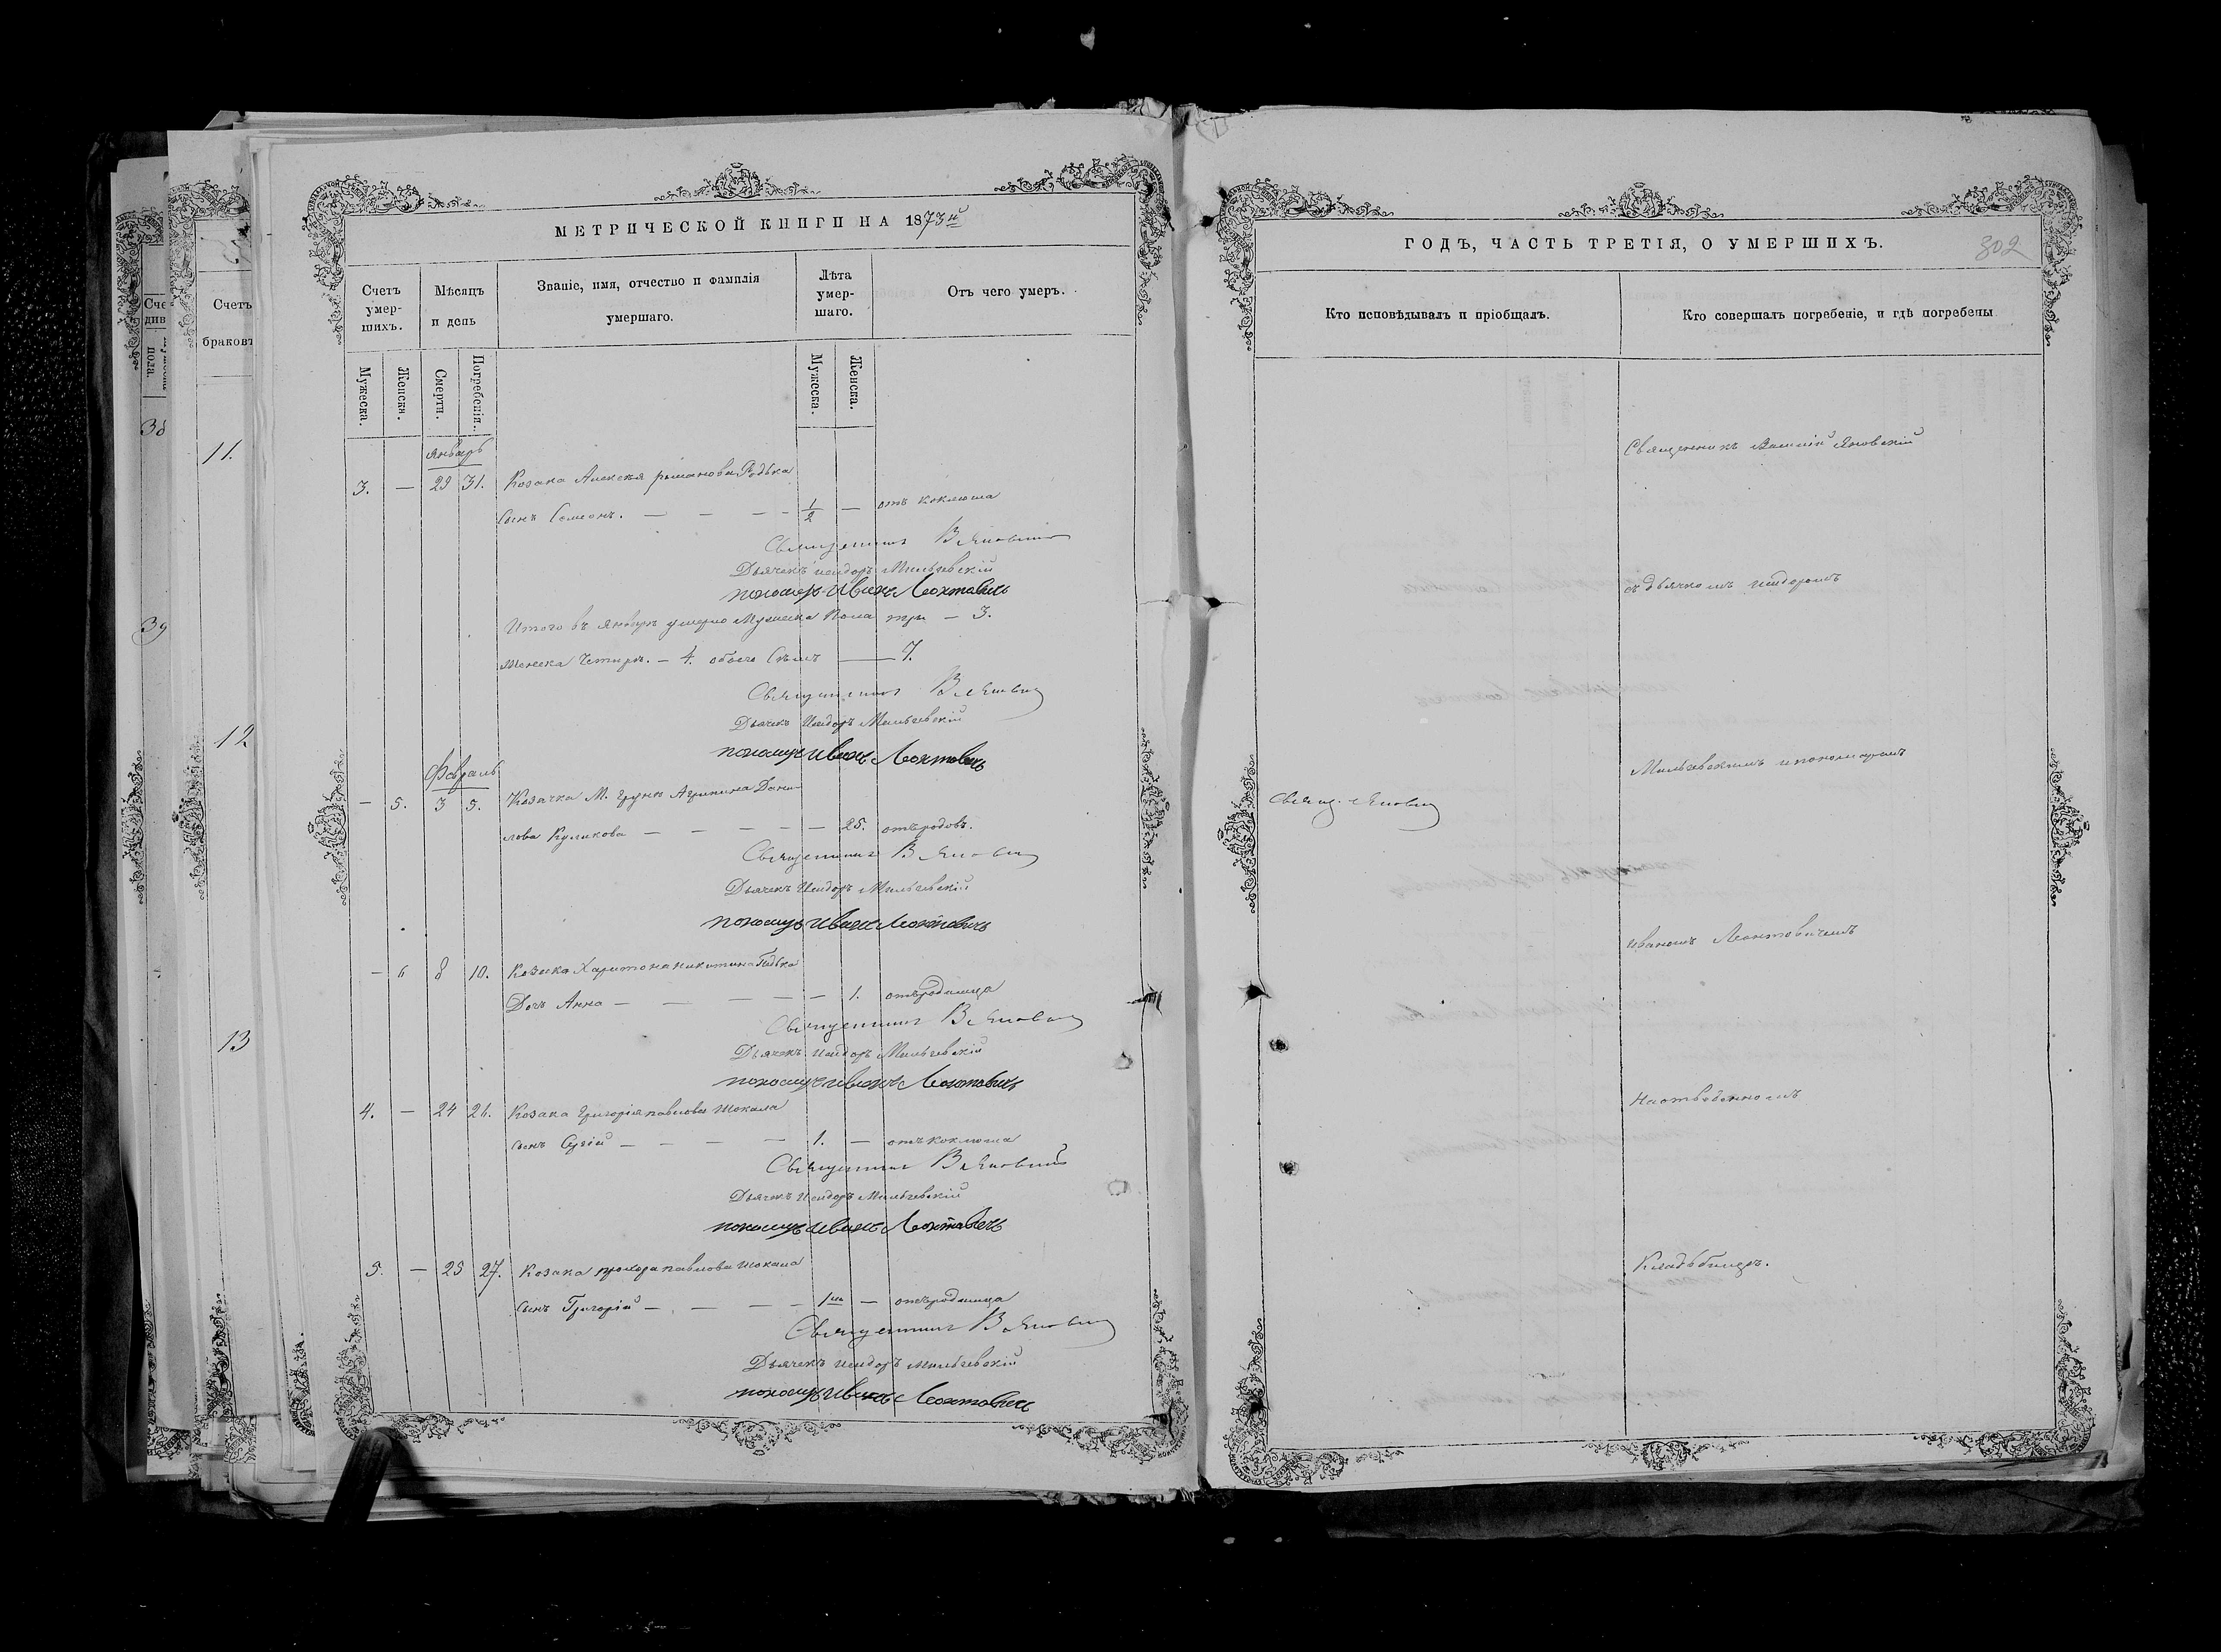 МЕТРИЧЕСКОЙ КНИГИ НА 1873й
Счетъ умер-шихъ.
Мѣсяцъ и день
Званіе, имя, отчество и фамилія умершаго.
Лѣта умер-шаго.
Отъ чего умеръ.
Мужеска.
Женска.
Смерти.
Погребенія.
Мужеска.
Женска.
Январь
3. — 29 31. Козака Алексѣя Родька
Сынъ Симеонъ. — — — 1/2 — отъ коклюша
Священникъ В Яновскій
Дьячекъ Исидоръ Мильгевскій
пономарь Иванъ Леонтовичъ
Итого въ Январѣ умерло Мужеска Пола три — 3.
Женска Четыре. — 4. обоего — 7.
Священникъ В Яновскій
Дьячекъ Исидоръ Мильгевскій
пономарь Иванъ Леонтовичъ
Февраль
— 5. 3 5. Козачка М. Агрипина Дани
лова Куликова — — — — 25. отъ родовъ.
Священникъ В Яновскій
Дьячекъ Исидоръ Мильгевскій
пономарь Иванъ Леонтовичъ
— 6 8 10. Козака Харитона Никитина
Дочь Анна — — — — 1. отъ родимца
Священникъ В Яновскій
Дьячекъ Исидоръ Мильгевскій
пономарь Иванъ Леонтовичъ
4. — 24 26. Козака Григорія Павлова Шокала
сынъ — — — — 1. — отъ коклюша
Священникъ В Яновскій
Дьячекъ Исидоръ Мильгевскій
пономарь Иванъ Леонтовичъ
5. — 25 27. Козака Павлова Шокала
сынъ Григорій — — — — 1 — отъ родимца
Священникъ В Яновскій
Дьячекъ Исидоръ Мильгевскій
пономарь Иванъ Леонтовичъ
ГОДЪ, ЧАСТЬ ТРЕТІЯ, О УМЕРШИХЪ.
302
Кто исповѣдывалъ и пріобщалъ.
Кто совершалъ погребеніе, и гдѣ погребены
Священникъ Василій Яновскій
съ дьячкомъ Исидоромъ
Мильгевскимъ и пономаремъ
Свящ. Яновскій
Иваномъ Леонтовичемъ
На отведенномъ
Кладбищѣ.
Счетъ
браковъ
11.
12
13
38
39